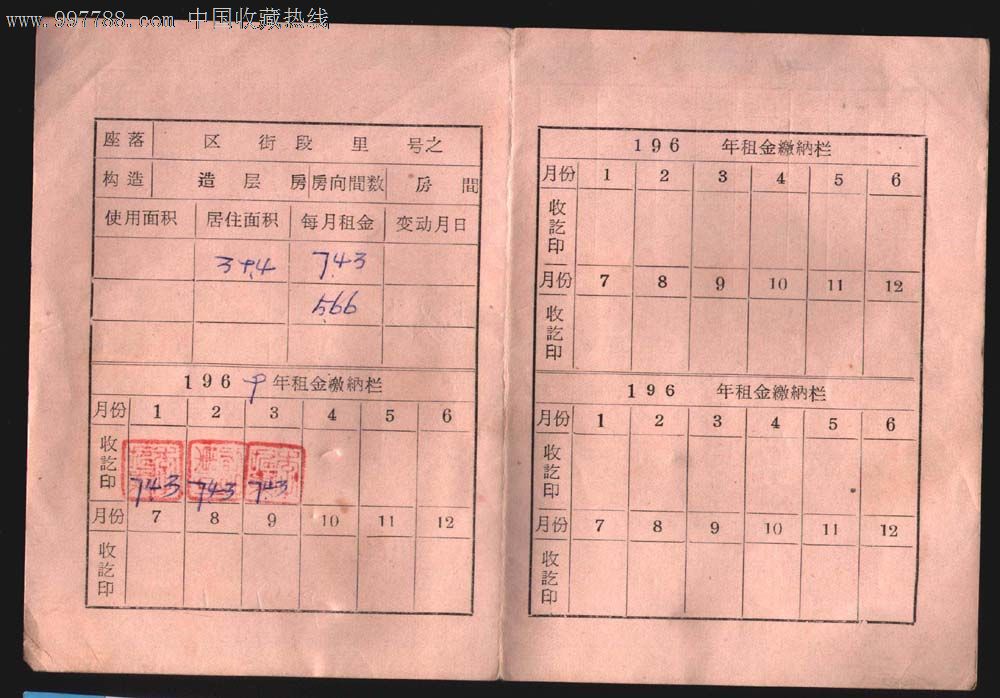 www.997788.com 中国收藏热线
座落 区 街 段 里 号之
构造 造 层 房 房向間数 房 間
使用面积 居住面积 每月租金 变动月日
743
566
196 年租金繳納栏
月份 1 2 3 4 5 6
收訖印 743 743 743
月份 7 8 9 10 11 12
收訖印
196 年租金繳納栏
月份 1 2 3 4 5 6
收訖印
月份 7 8 9 10 11 12
收訖印
196 年租金繳納栏
月份 1 2 3 4 5 6
收訖印
月份 7 8 9 10 11 12
收訖印